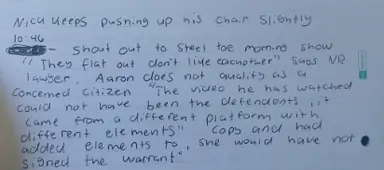 Nick keeps pushing up his chair slightly
10:46
- Shout out to Steel toe morning show
"They flat out don't like eachother" says NR
lawyer. Aaron does not quality as a
concerned citizen "The video he has watched
could not have been the defendents, it
came from a different platform with
different elements" Copy and had
added elements to, she would have not
signed the warrant"